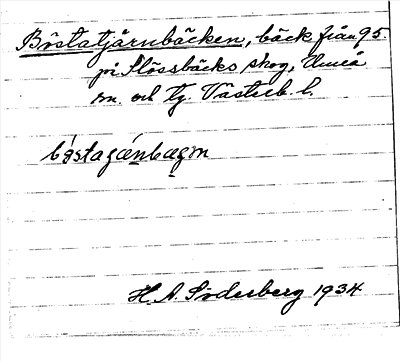 Böstatjärnbäcken, bäck från 95.
på Slössbäcks skog, Umeå
sn. och tg. Västerb. l.
bø̀stagánbægɒn
H. A. Söderberg 1934